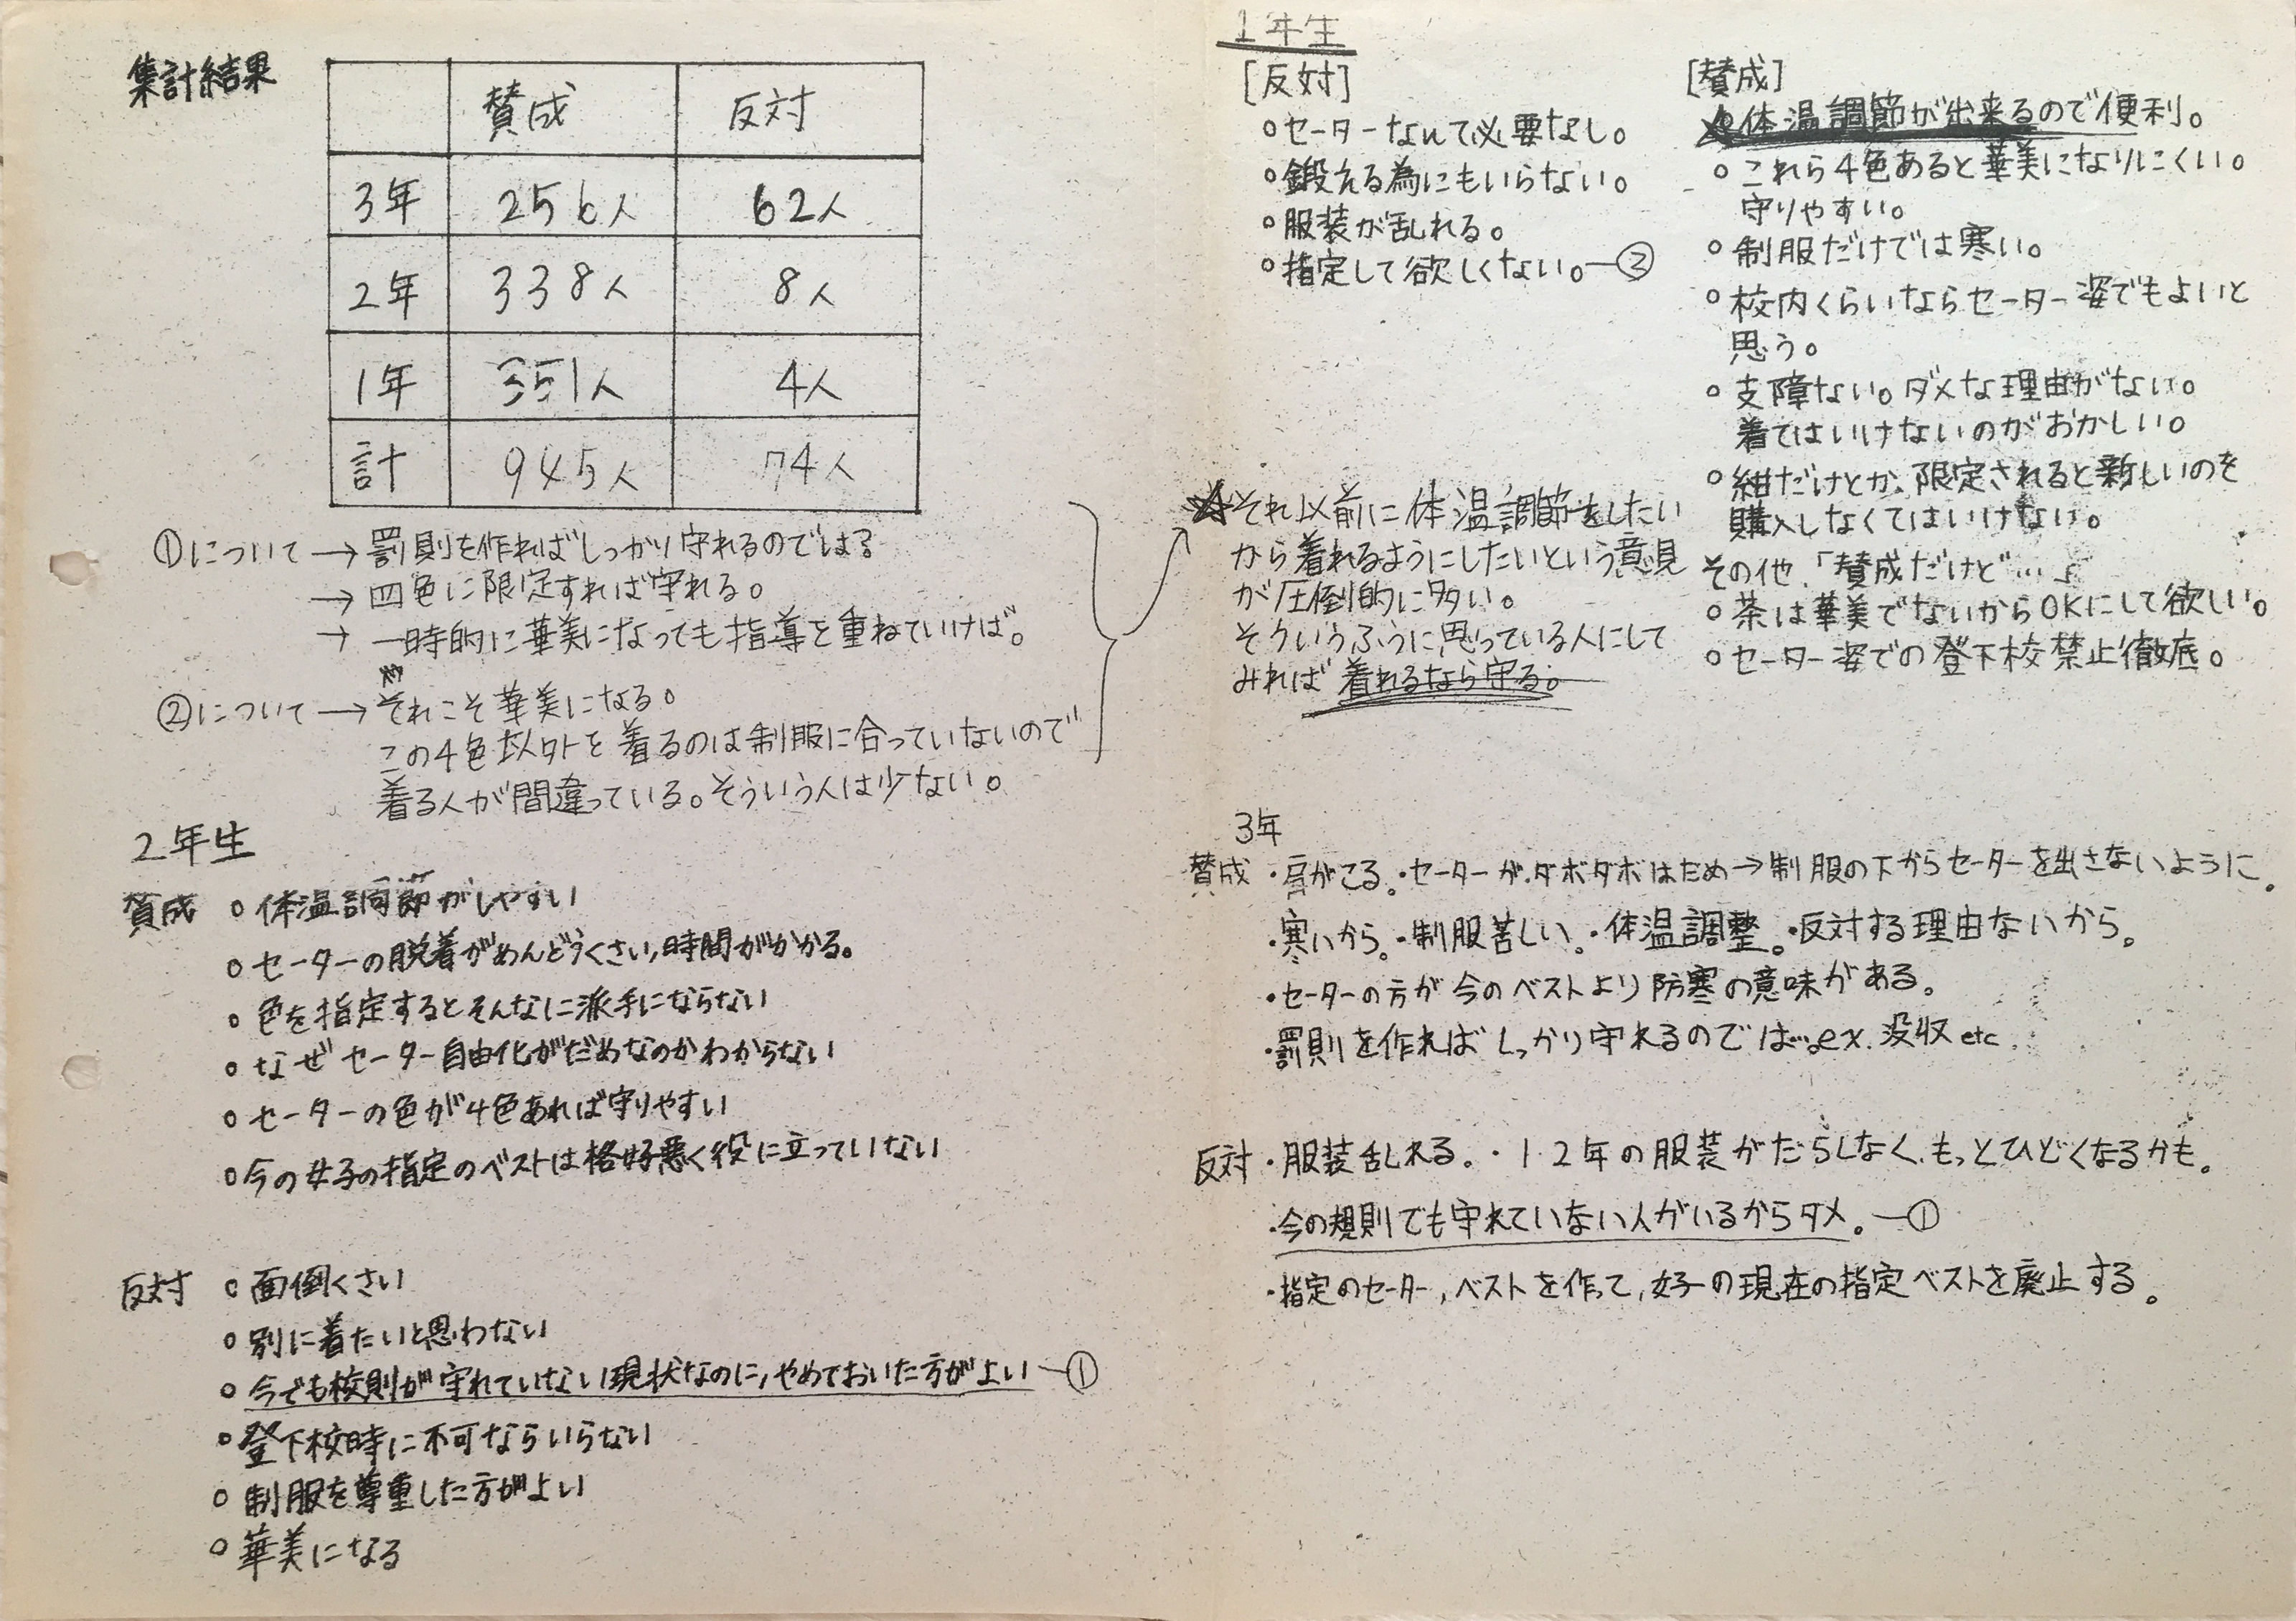 集計結果
賛成 反対
3年 256人 62人
2年 338人 8人
1年 351人 4人
計 945人 74人
①について→罰則を作ればしっかり守れるのでは?
→四色に限定すれば守れる。
→一時的に華美になっても指導を重ねていけば。
②について→それこそ華美になる。
この4色以外を着るのは制服に合っていないので
着る人が間違っている。そういう人は少ない。
2年生
賛成 ○体温調節がしやすい
○セーターの脱着がめんどうくさい,時間がかかる。
○色を指定するとそんなに派手にならない
○なぜセーター自由化がだめなのかわからない
○セーターの色が4色あれば守りやすい
○今の女子の指定のベストは格好悪く役に立っていない
反対 ○面倒くさい
○別に着たいと思わない
○今でも校則が守れていない現状なのに,やめておいた方がよい―①
○登下校時に不可ならいらない
○制服を尊重した方がよい
○華美になる
1年生
[反対]
○セーターなんて必要なし。
○鍛える為にもいらない。
○服装が乱れる。
○指定して欲しくない。―②
[賛成]
☆体温調節が出来るので便利。
○これら4色あると華美になりにくい。
守りやすい。
○制服だけでは寒い。
○校内くらいならセーター姿でもよいと
思う。
○支障ない。ダメな理由がない。
着てはいけないのがおかしい。
○紺だけとか、限定されると新しいのを
購入しなくてはいけない。
その他「賛成だけど…」
○茶は華美でないからOKにして欲しい。
○セーター姿での登下校禁止徹底。
☆それ以前に体温調節をしたい
から着れるようにしたいという意見
が圧倒的に多い。
そういうふうに思っている人にして
みれば着れるなら守る。
3年
賛成 ・肩がこる。・セーターがダボダボはだめ→制服の下からセーターを出さないように。
・寒いから。・制服苦しい。・体温調整。・反対する理由ないから。
・セーターの方が今のベストより防寒の意味がある。
・罰則を作ればしっかり守れるのでは…ex.没収etc
反対・服装乱れる。・1.2年の服装がだらしなく、もっとひどくなるかも。
・今の規則でも守れていない人がいるからダメ。―①
・指定のセーター,ベストを作って,女子の現在の指定ベストを廃止する。